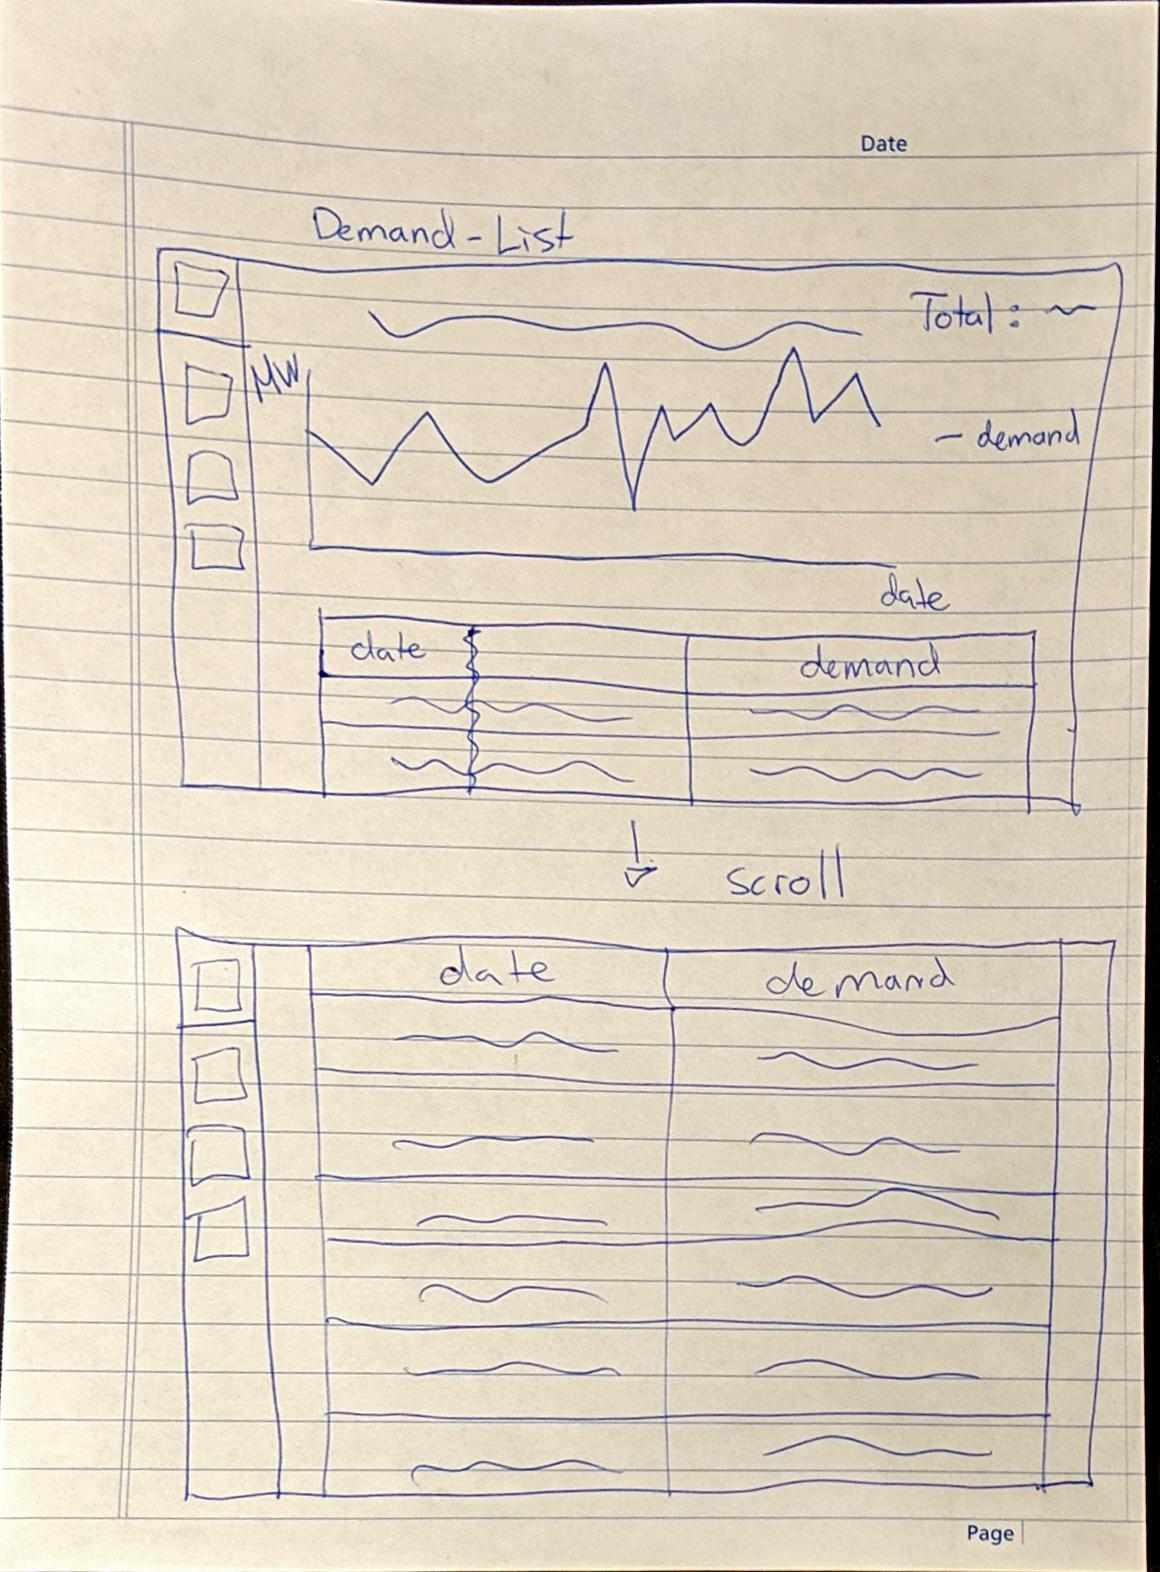 Date
Demand - List
Total :
MW
- demand
date
date demand
scroll
date demand
Page